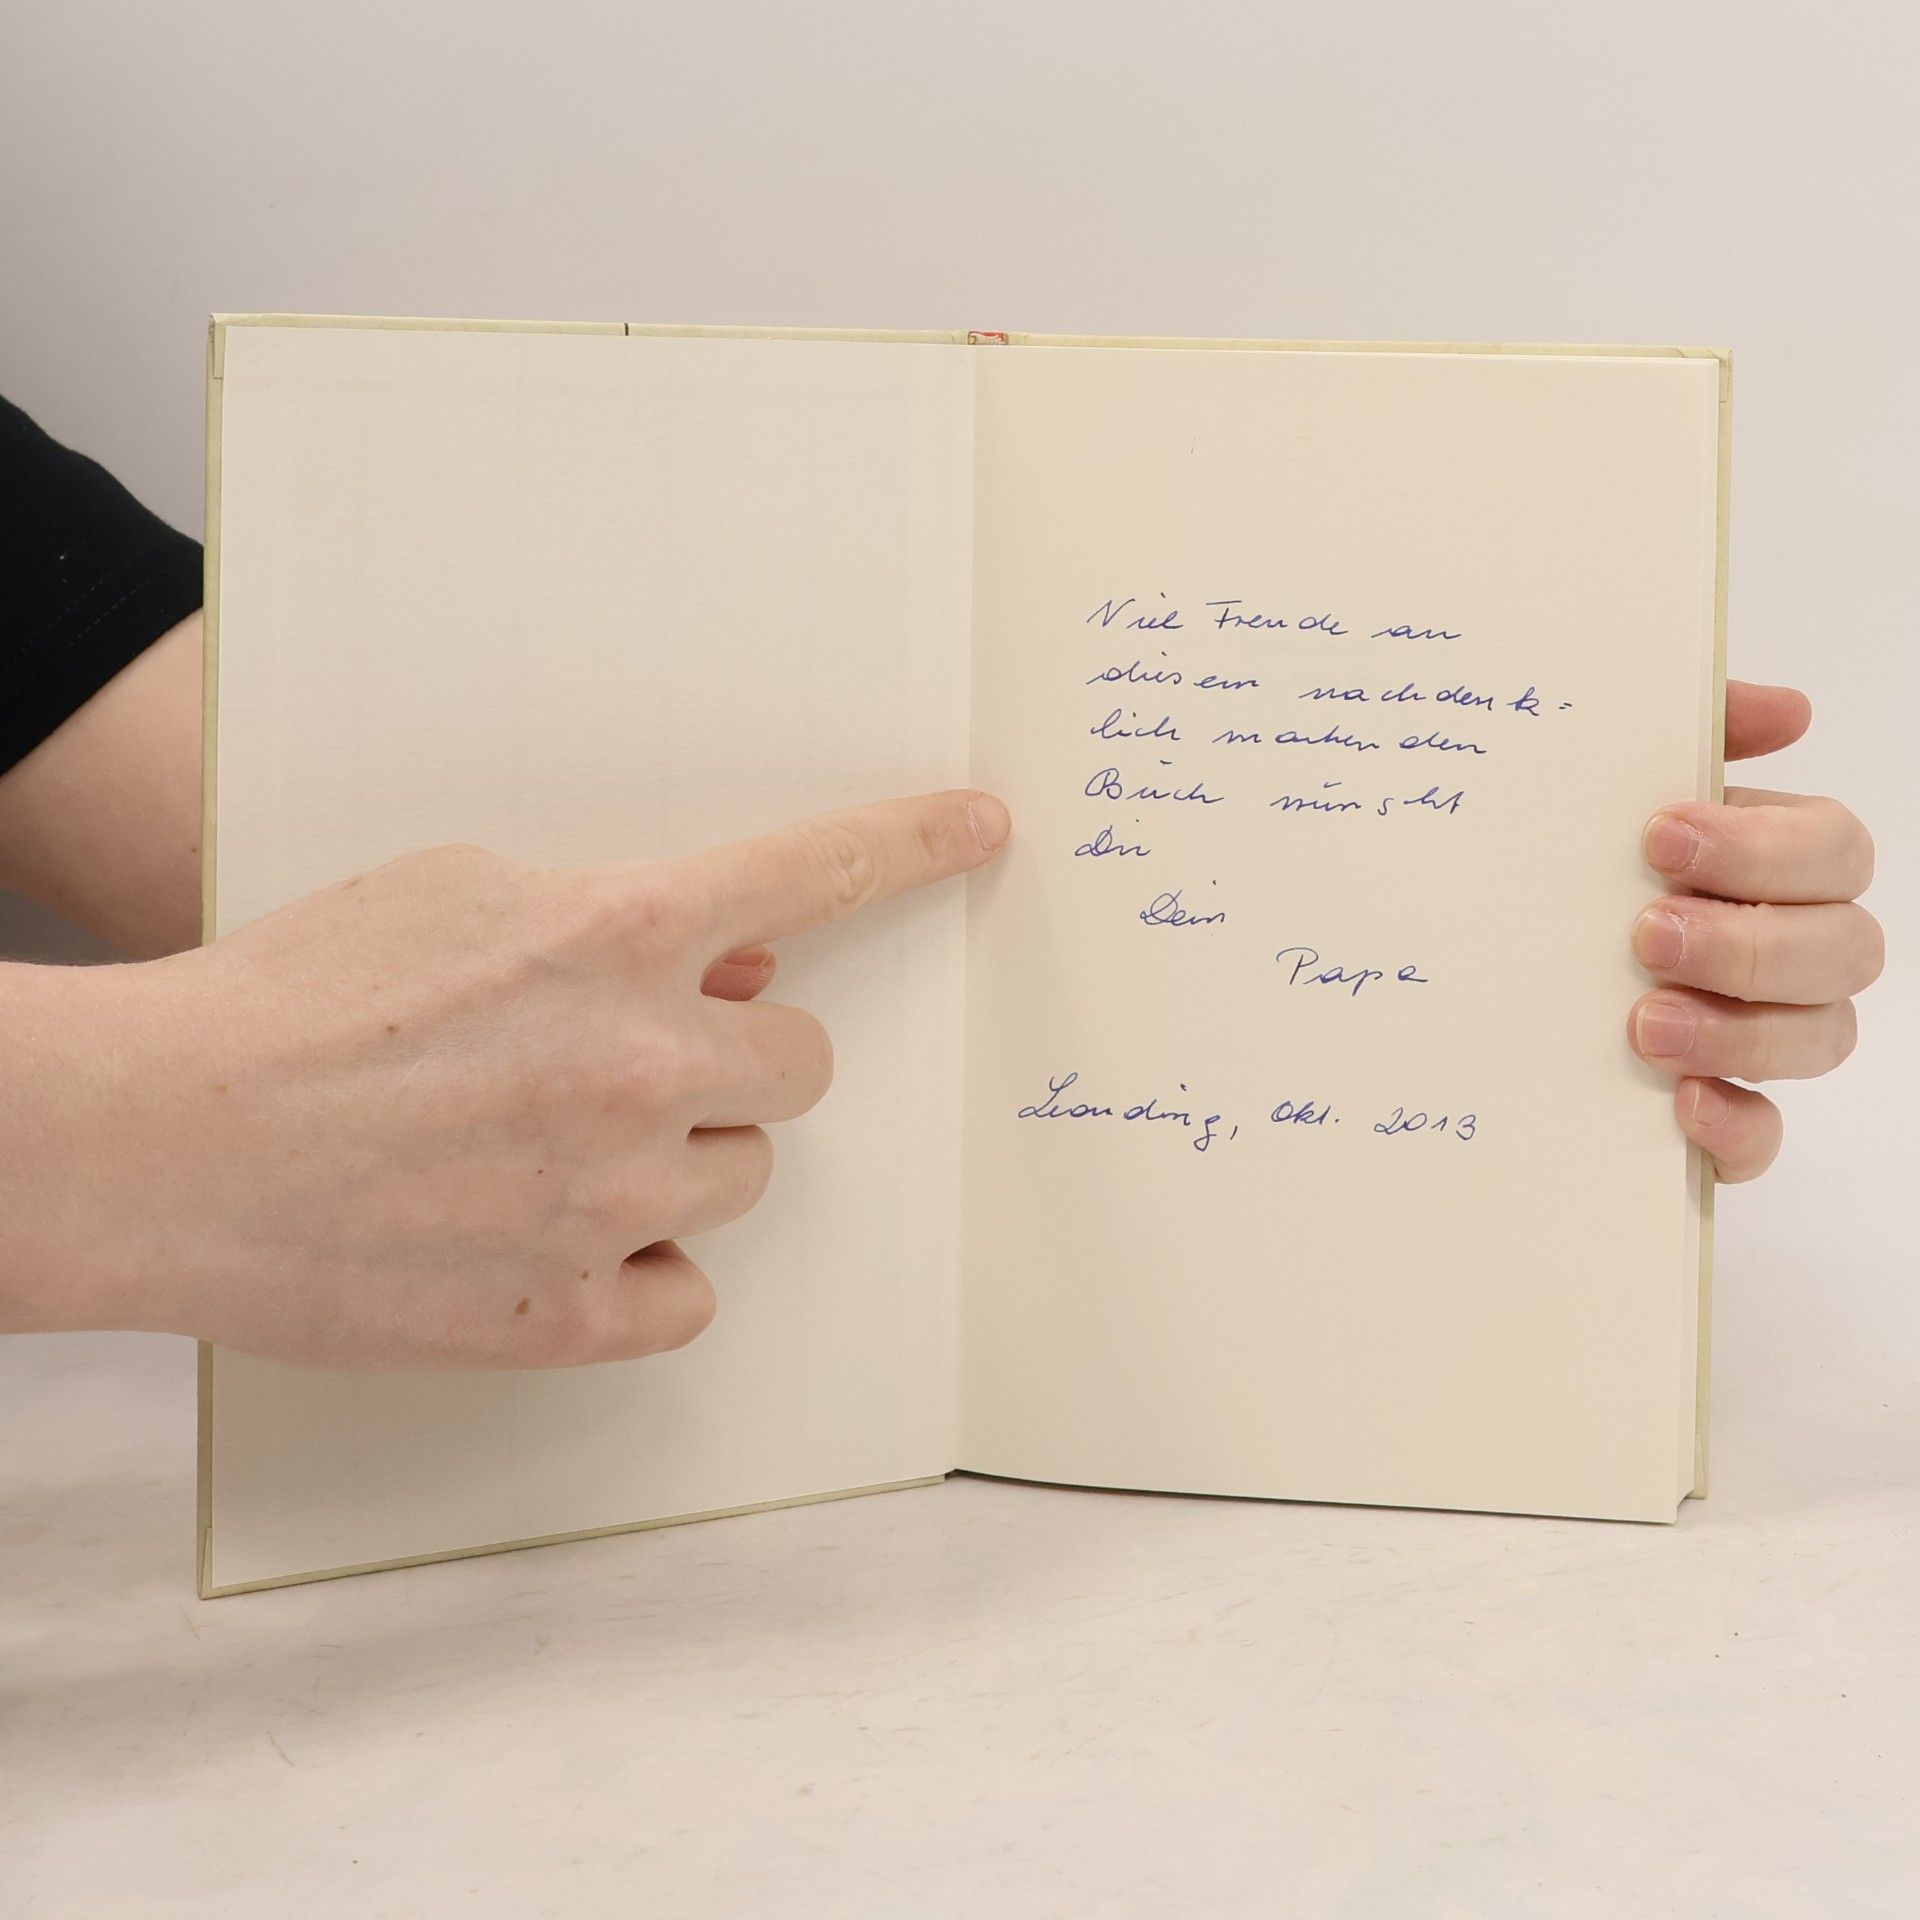 Viel Freude an
diesem nachdenk=
lich machenden
Buch wünscht
Dir
Dein
Papa
Leonding, Okt. 2013